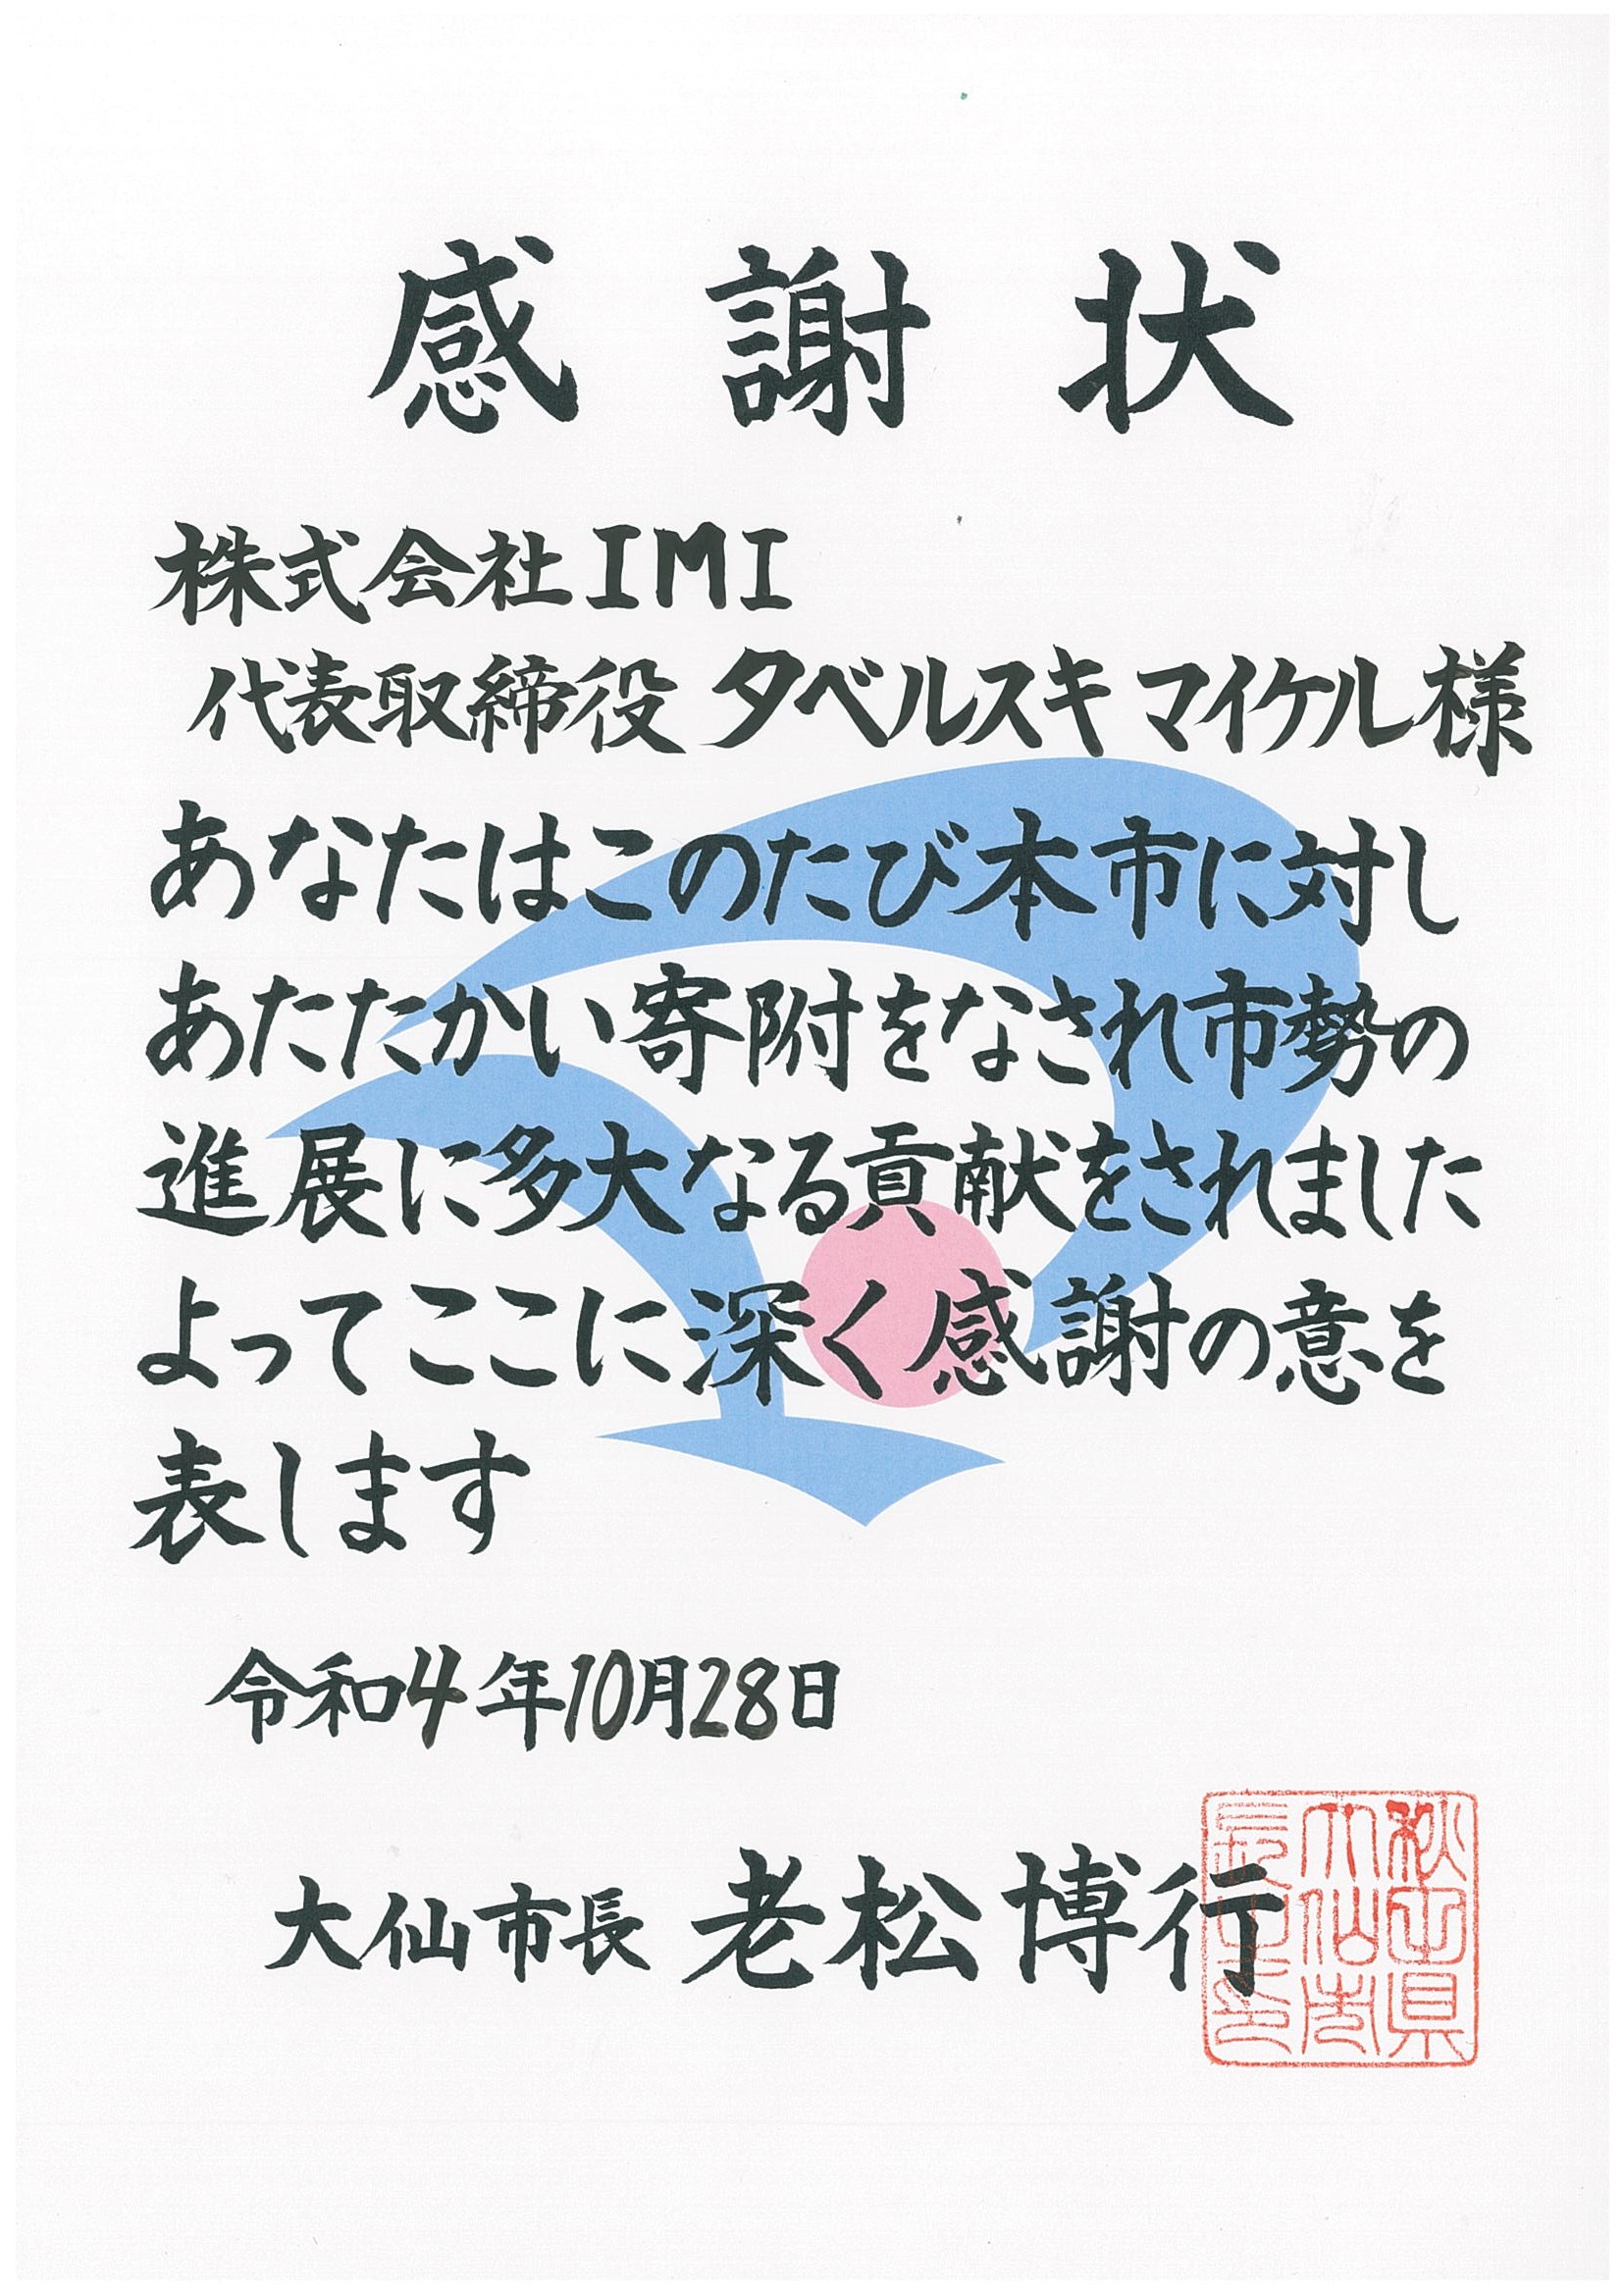 感謝状
株式会社IMI
代表取締役 タベルスキ マイケル 様
あなたはこのたび本市に対し
あたたかい寄附をなされ市勢の
進展に多大なる貢献をされました
よってここに深く感謝の意を
表します
令和4年10月28日
大仙市長 老松博行
秋田県
大仙市
長之印